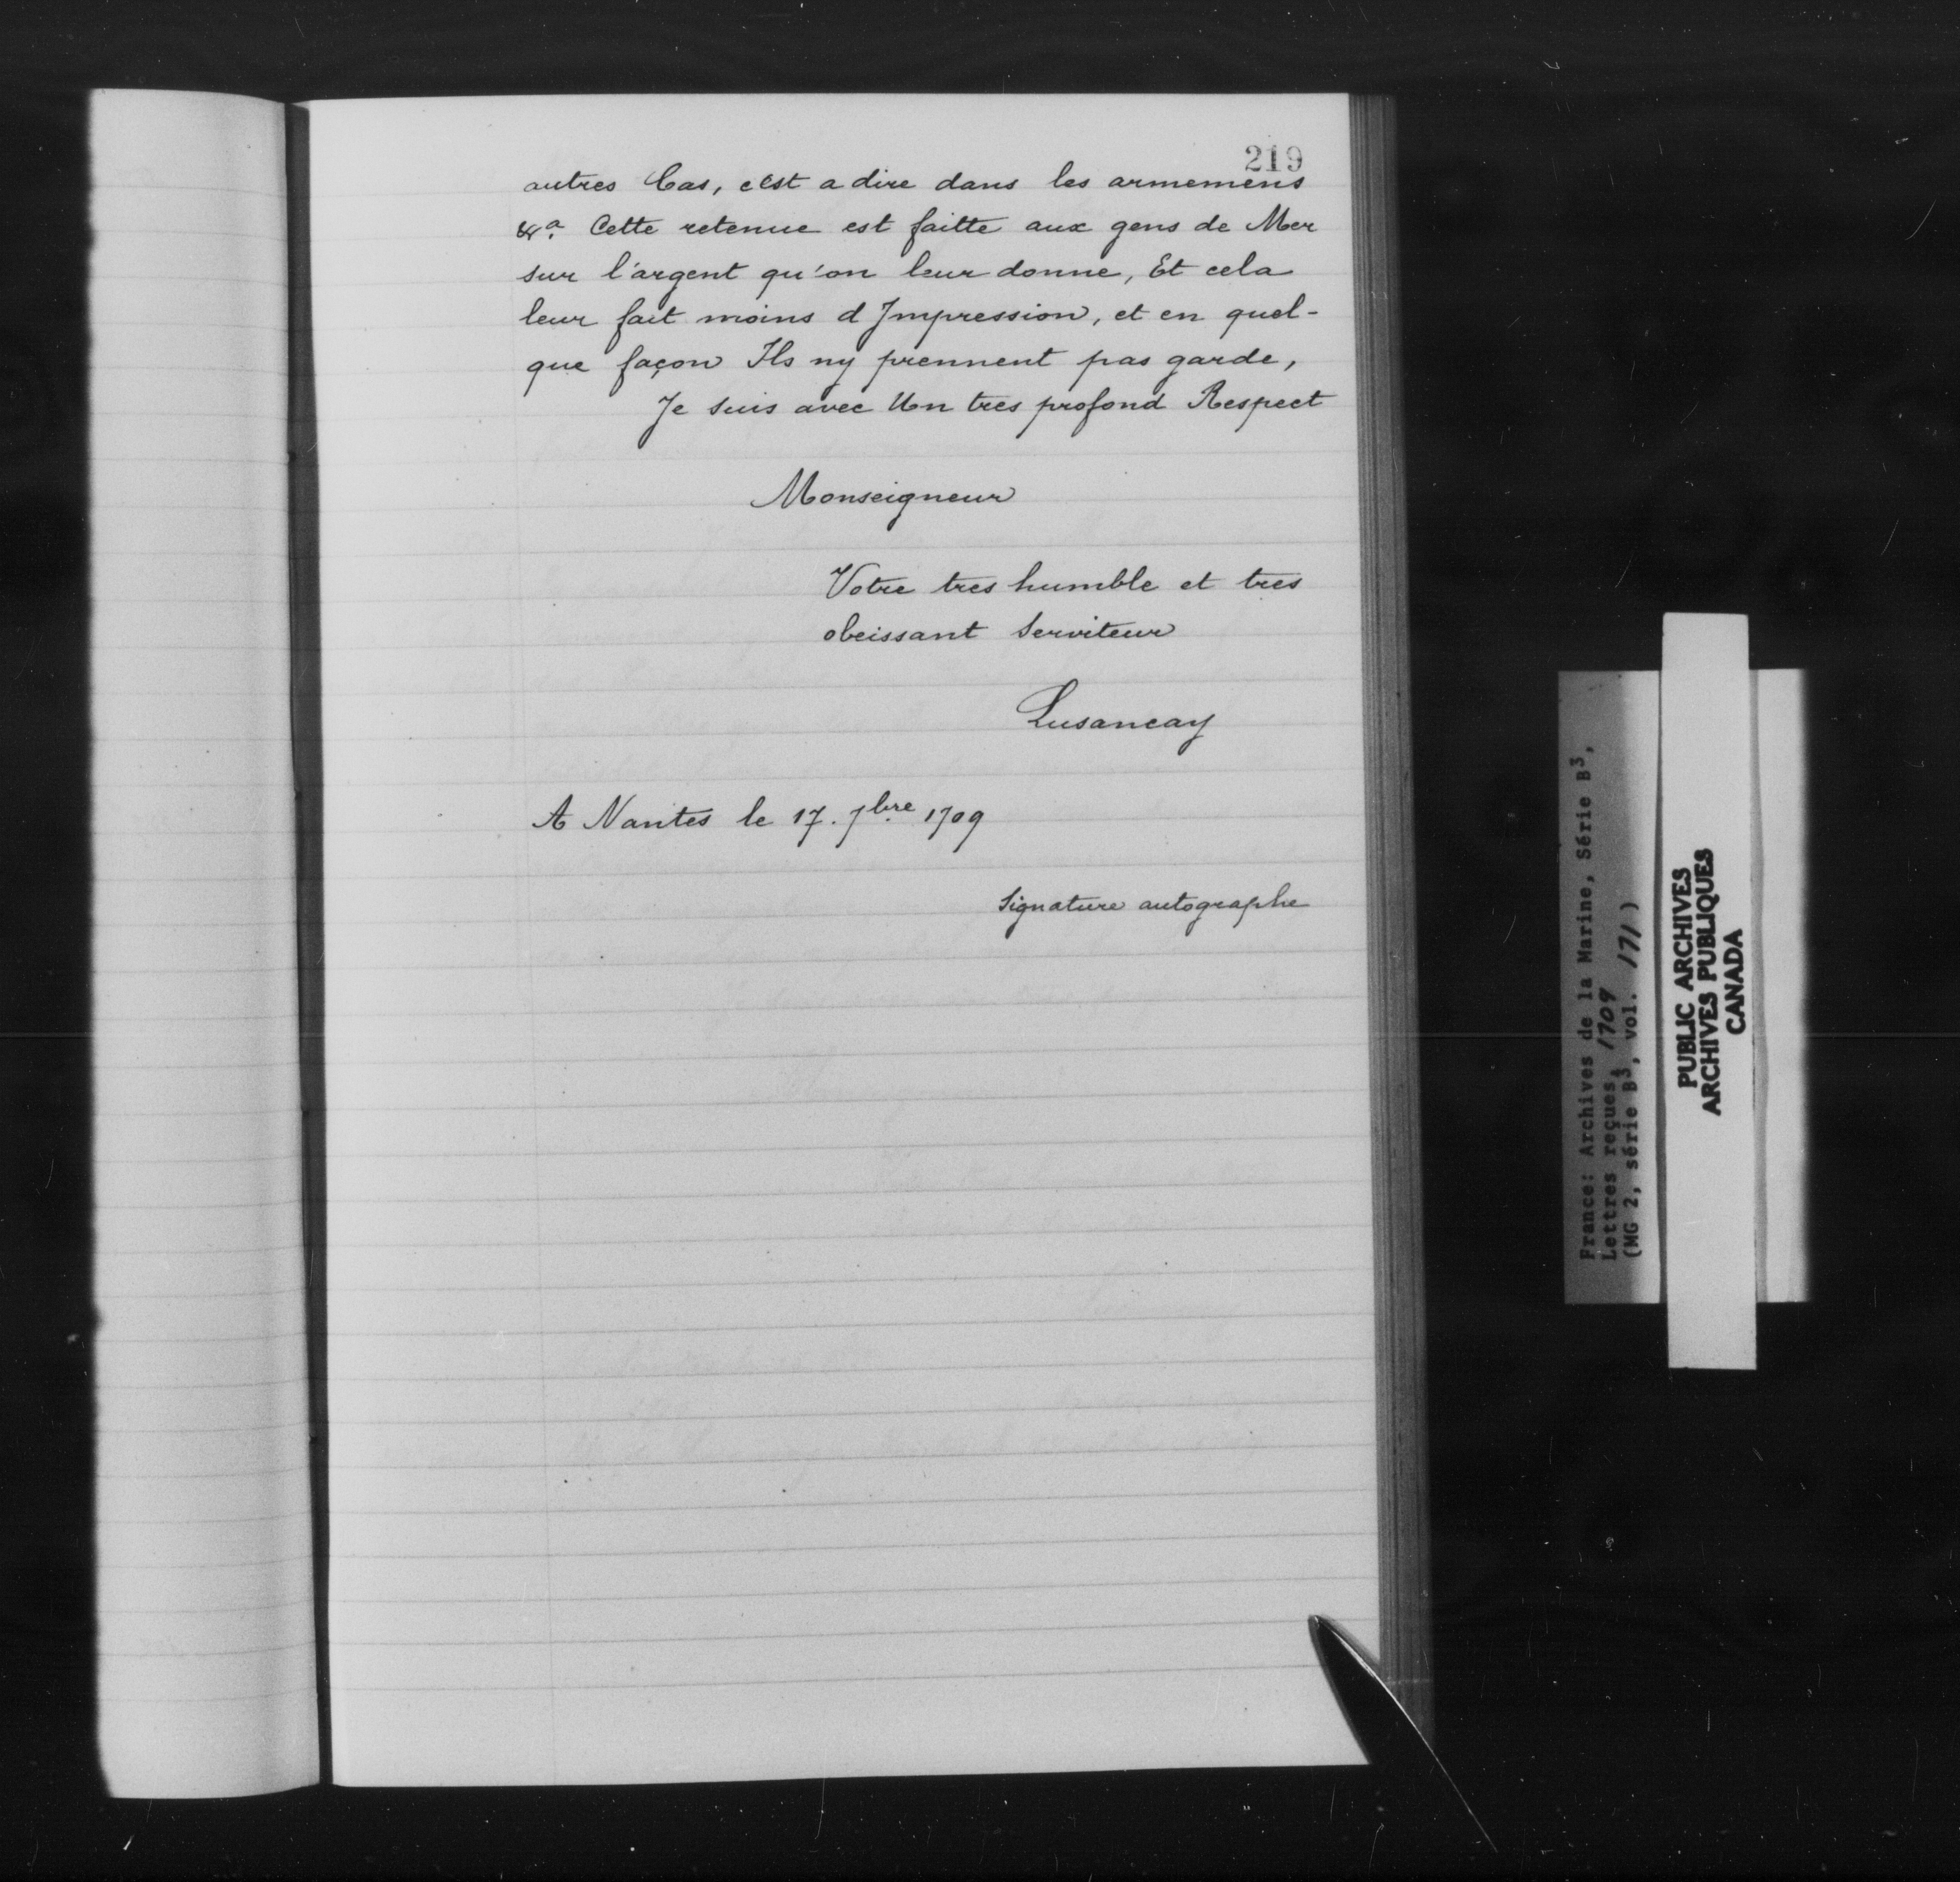 219
autres Cas, cest a dire dans les armemens
&ª. Cette retenue est faitte aux gens de Mer
sur l'argent qu'on leur donne, Et cela
leur fait moins d Impression, et en quel-
que façon Ils ny prennent pas garde,
Je suis avec Un tres profond Respect
Monseigneur
Votre tres humble et tres
obeissant Serviteur
Lusancay
A Nantes le 17. 7bre 1709
Signature autographe
France: Archives de la Marine, Série B3,
Lettres reçues, 1709
(MG 2, série B3, vol. 171)
PUBLIC ARCHIVES
ARCHIVES PUBLIQUES
CANADA